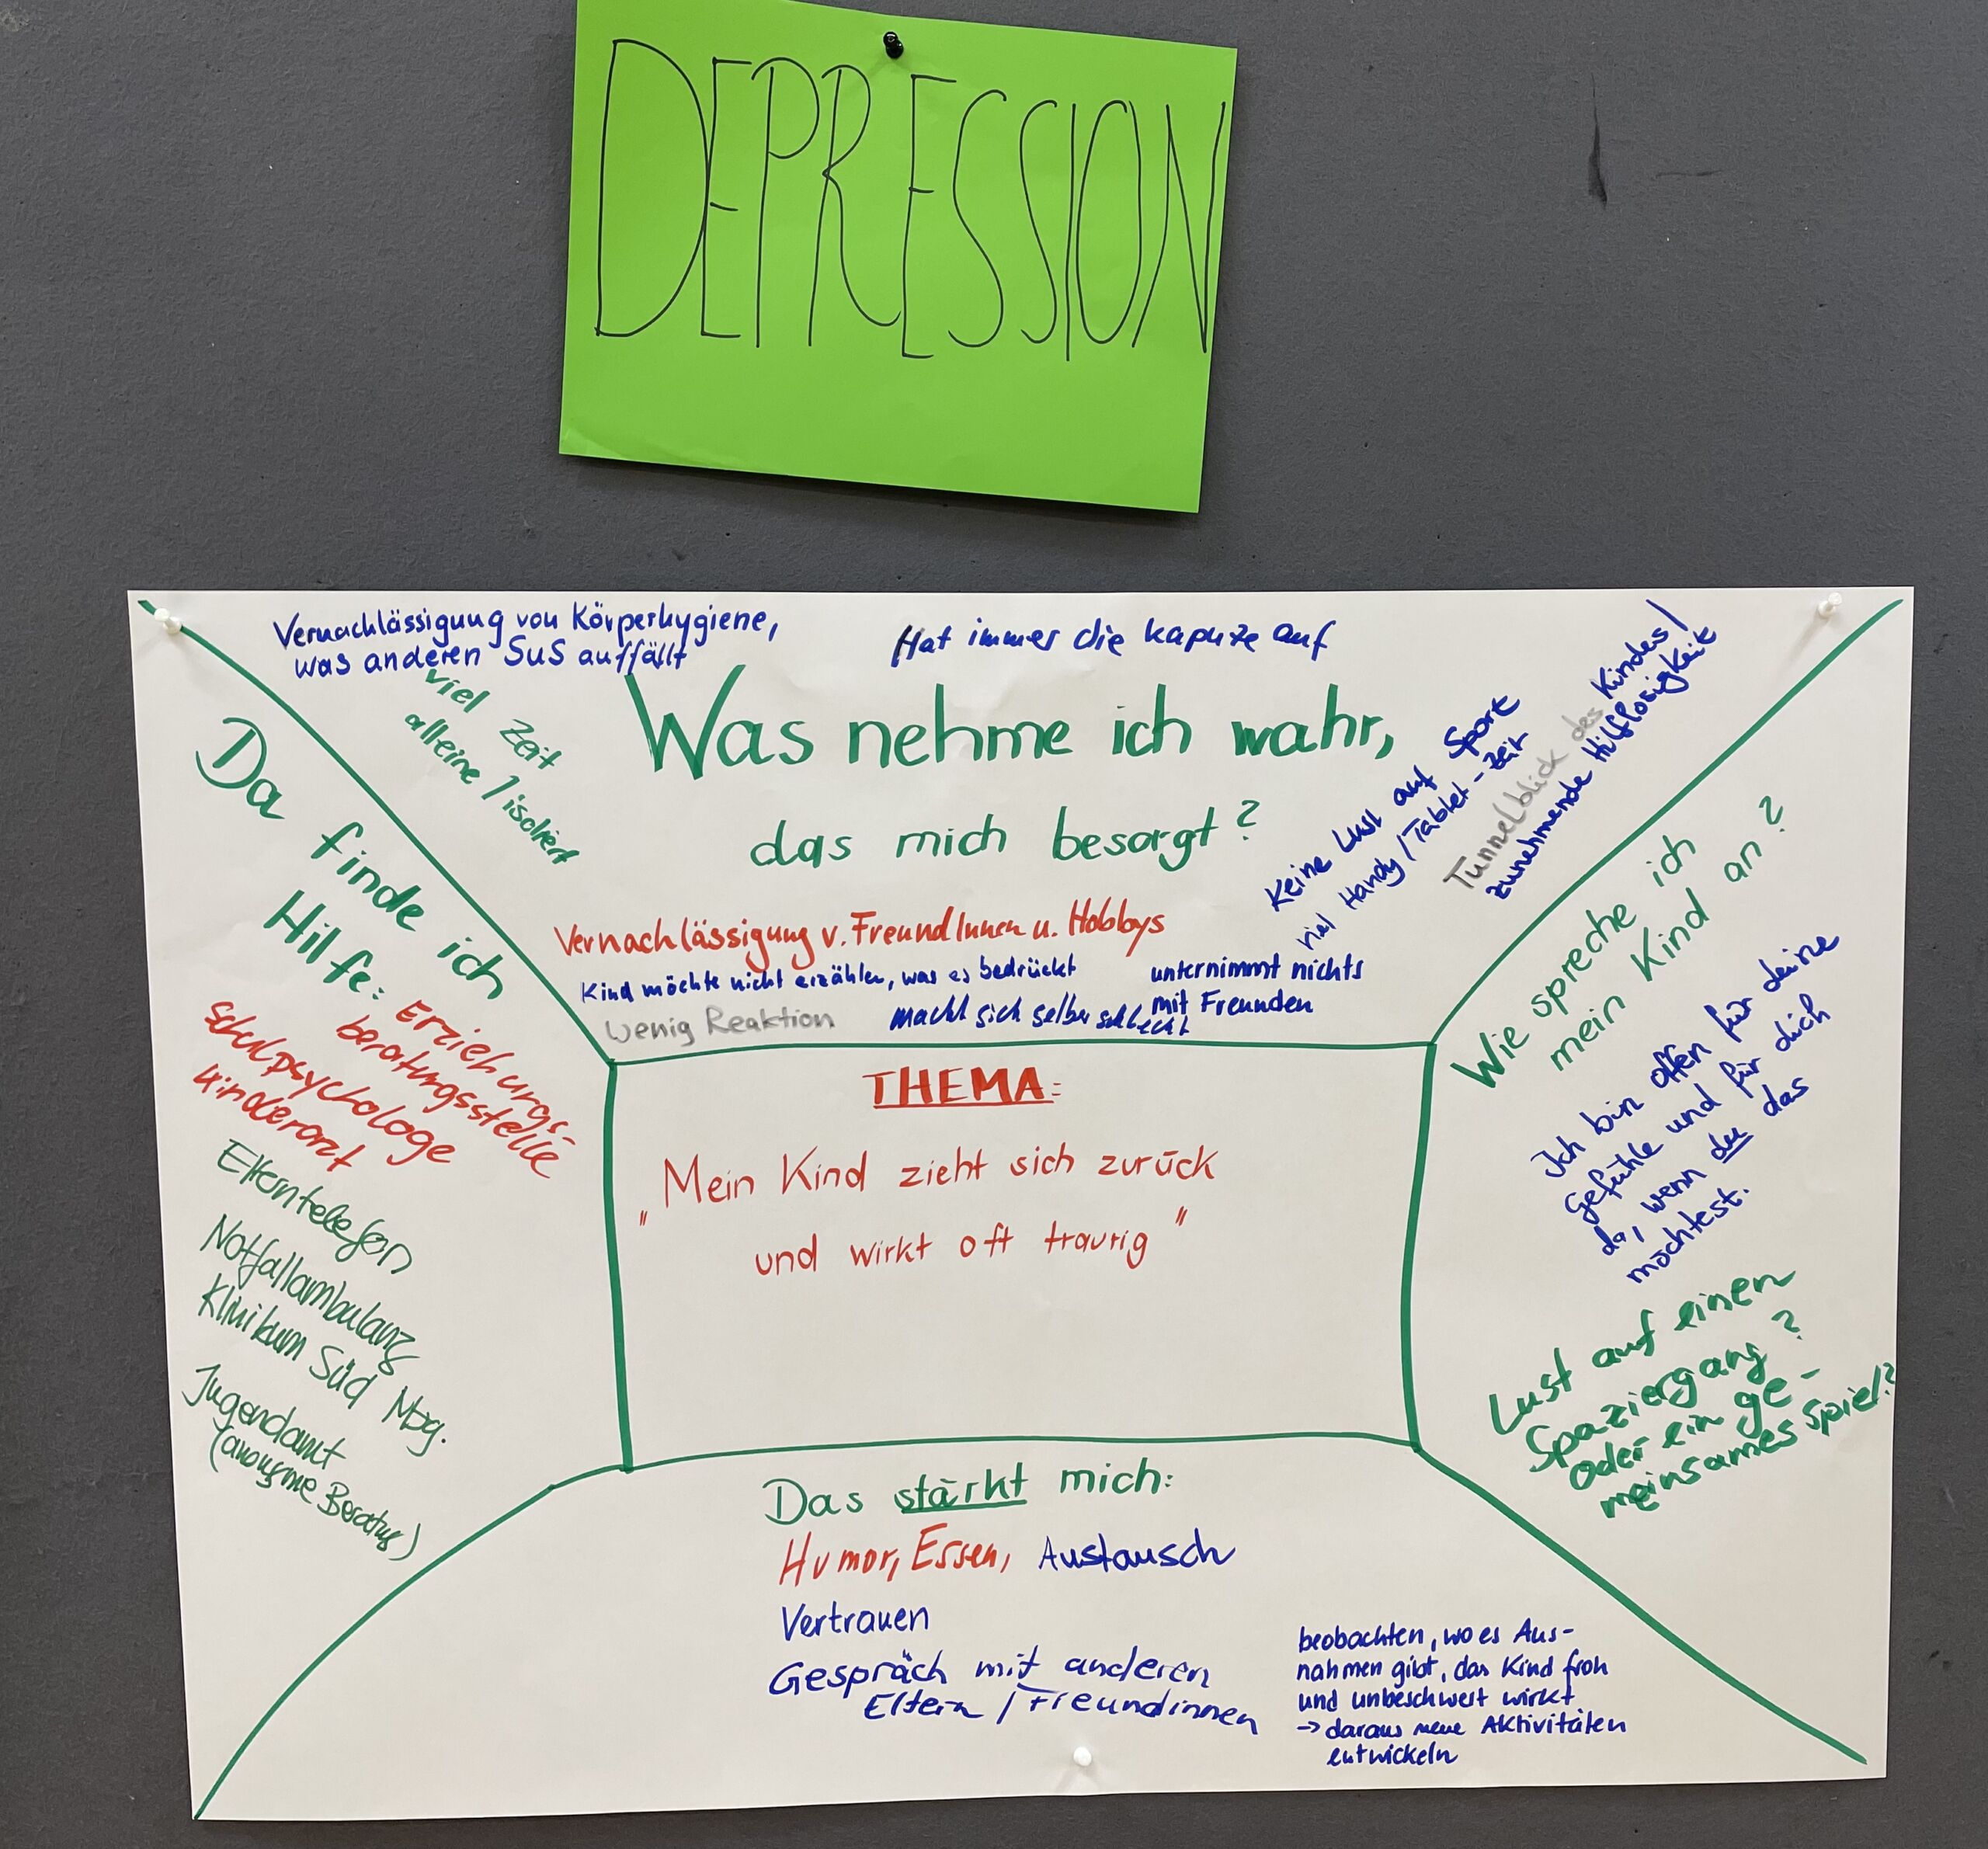 DEPRESSION
Vernachlässigung von Körperhygiene,
was anderen SuS auffällt
Hat immer die Kapuze auf
viel Zeit
alleine / isoliert
Was nehme ich wahr,
das mich besorgt?
Keine Lust auf Sport
viel Handy / Tablet-zeit
Tunnelblick des Kindes /
zunehmende Hilflosigkeit
Vernachlässigung v. FreundInnen u. Hobbys
Kind möchte nicht erzählen, was es bedrückt
unternimmt nichts
mit Freunden
Wenig Reaktion
macht sich selber schlecht
Da finde ich
Hilfe: Erziehungs-
beratungsstelle
Schulpsychologe
Kinderarzt
Elterntelefon
Notfallambulanz
Klinikum Süd Mbg.
Jugendamt
(anonyme Beratung)
THEMA:
"Mein Kind zieht sich zurück
und wirkt oft traurig"
Wie spreche ich
mein Kind an?
Ich bin offen für deine
Gefühle und für dich
da, wenn du das
möchtest.
Lust auf einen
Spaziergang?
oder ein ge-
meinsames Spiel?
Das stärkt mich:
Humor, Essen, Austausch
Vertrauen
Gespräch mit anderen
Eltern / Freundinnen
beobachten, wo es Aus-
nahmen gibt, das Kind froh
und unbeschwert wirkt
-> daraus neue Aktivitäten
entwickeln